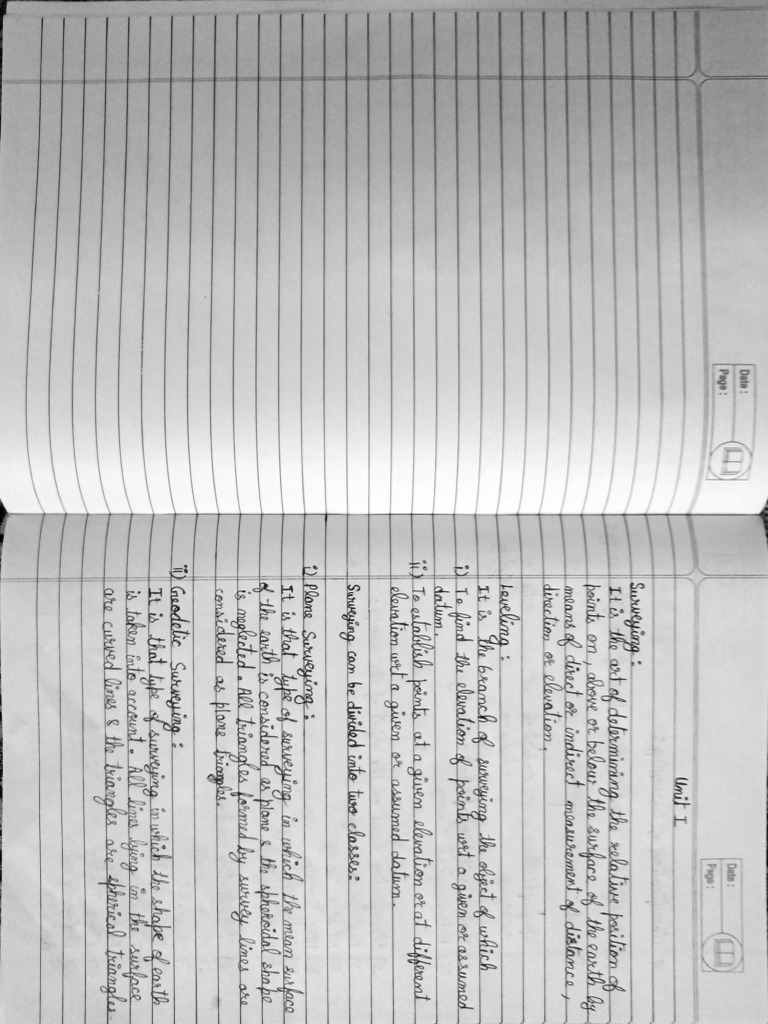 Date :
Page :
Date :
Page :
Unit I
Surveying :
It is the art of determining the relative position of
points on, above or below the surface of the earth by
means of direct or indirect measurement of distance,
direction or elevation.
Leveling :
It is the branch of surveying the object of which
i) To find the elevation of points wrt a given or assumed
datum.
ii) To establish points at a given elevation or at different
elevation wrt a given or assumed datum.
Surveying can be divided into two classes :
i) Plane Surveying :
It is that type of surveying in which the mean surface
of the earth is considered as plane & the spheroidal shape
is neglected. All triangles formed by survey lines are
considered as plane triangles.
ii) Geodetic Surveying :
It is that type of surveying in which the shape of earth
is taken into account. All lines lying in the surface
are curved lines & the triangles are spherical triangles